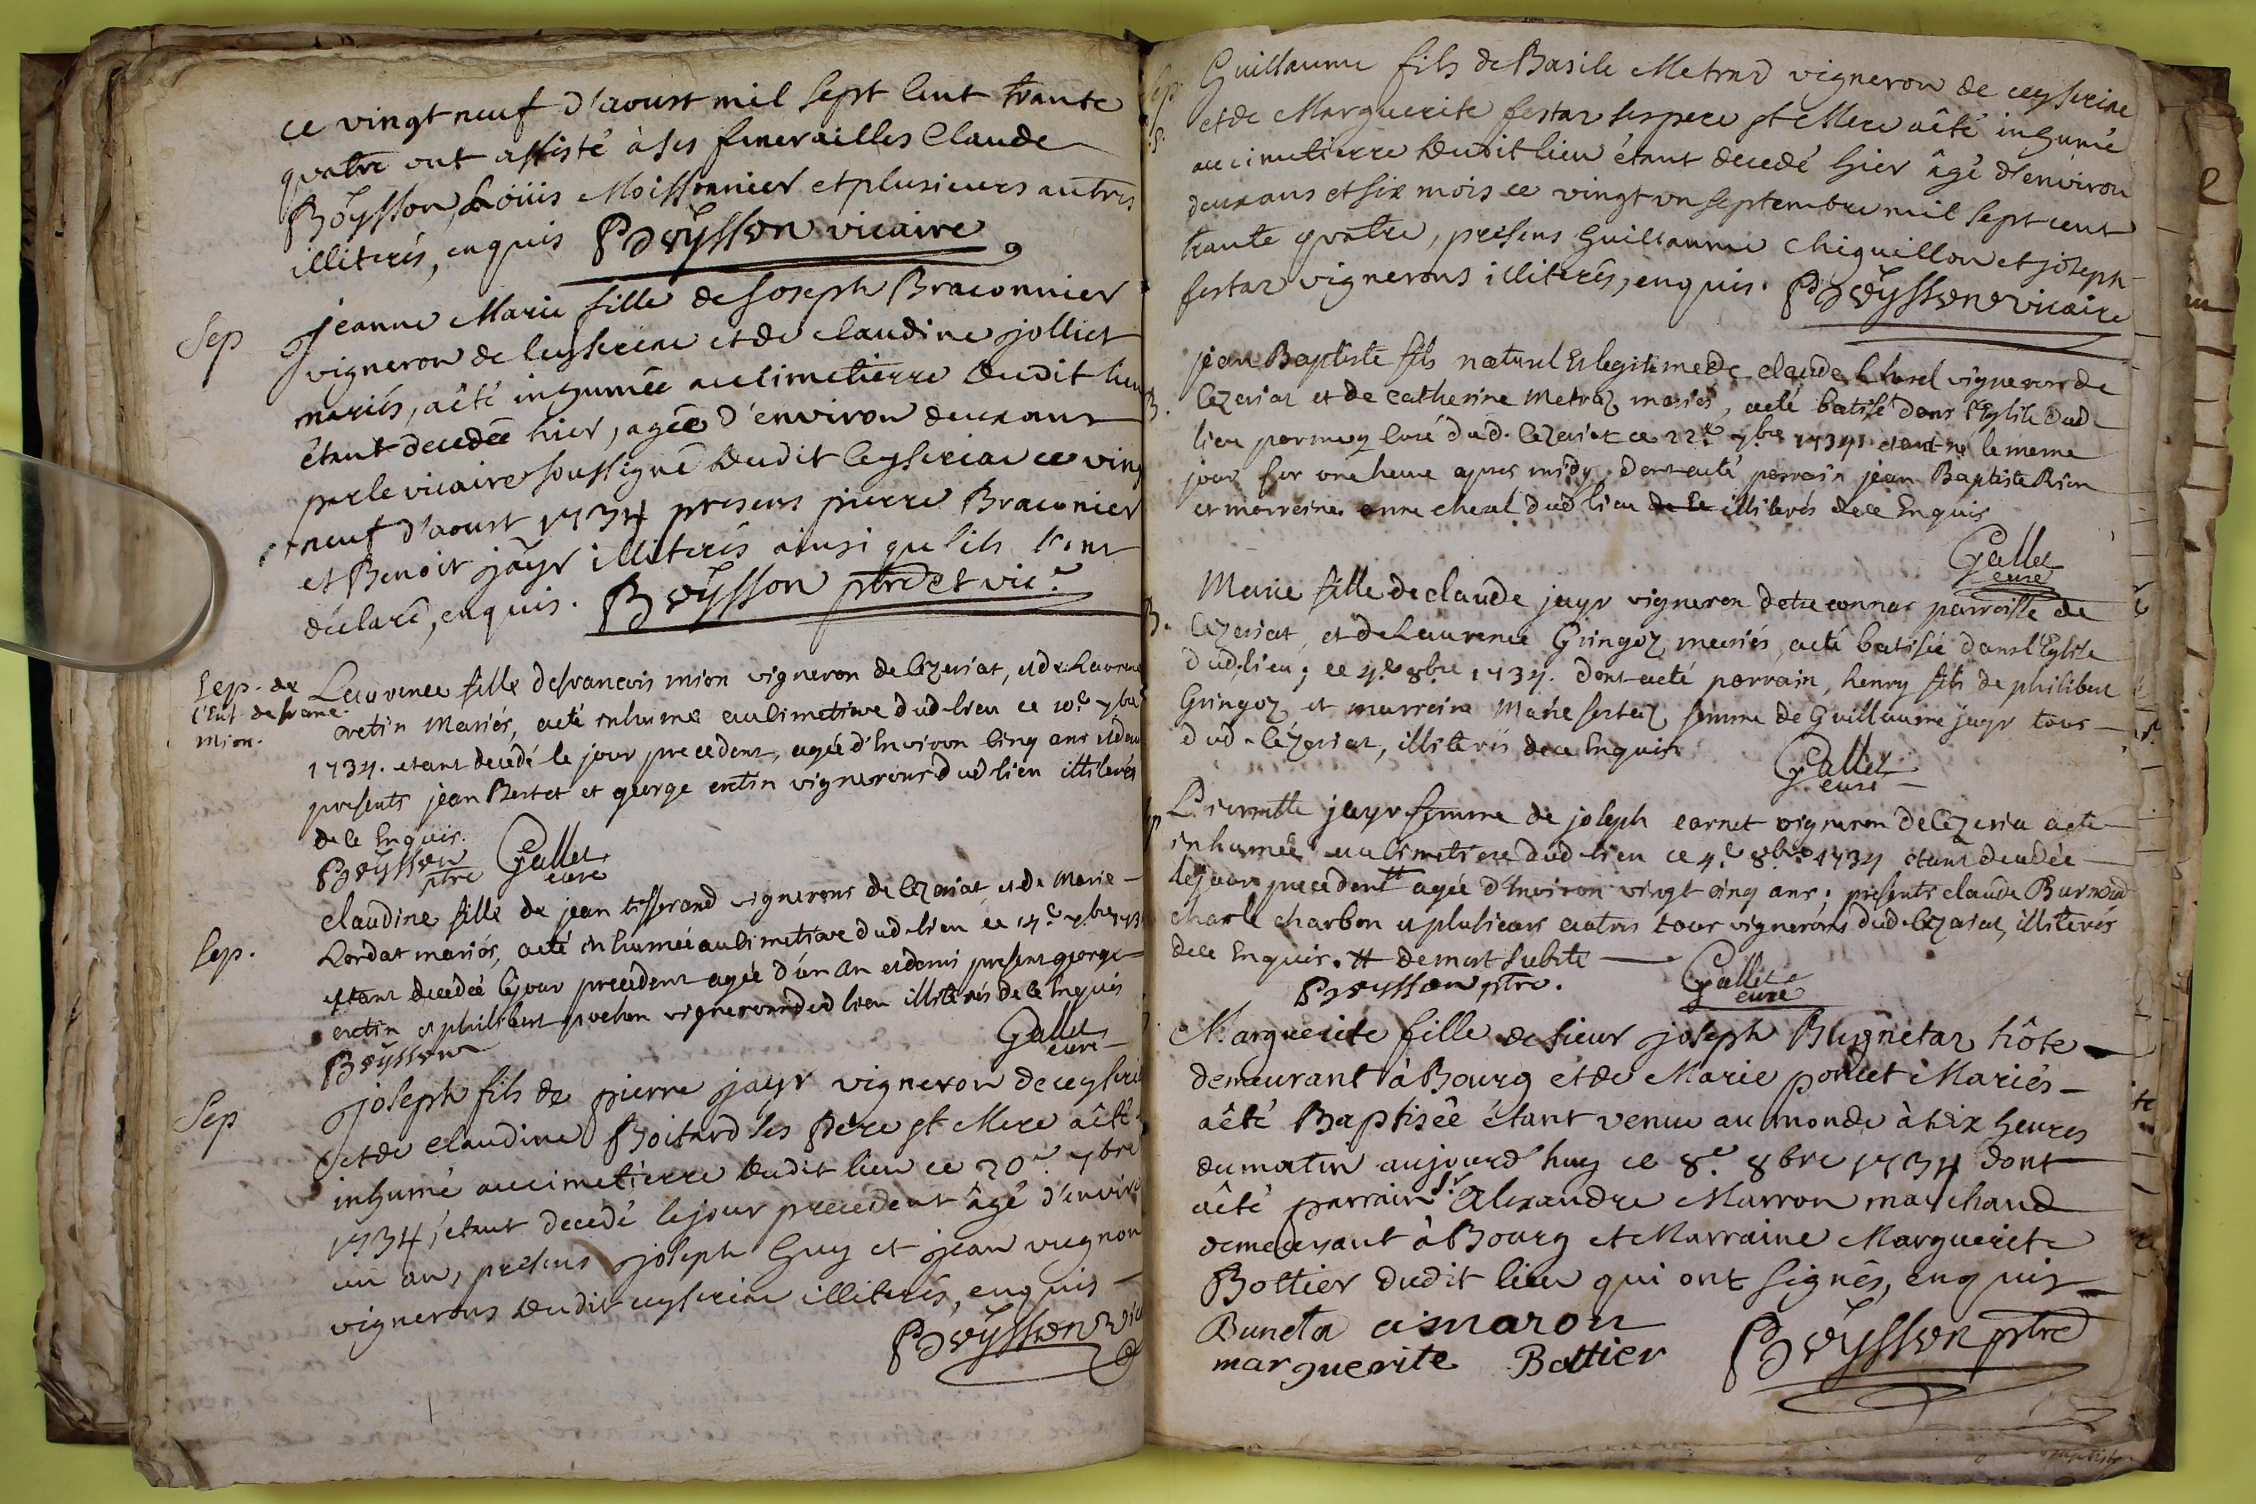 ce vingt neuf d'aoust mil sept cent trante
quatre ont assisté à ses funerailles Claude
Boÿsson, Loüis Moissonnier et plusieurs autres
illiterés, enquis Beÿsson vicaire
Sep
jeanne Marie fille de Joseph Braconnier
vigneron de Ceyseriat et de Claudine jolliet
mariés, a êté inhumée au cimetierre dudit lieu
êtant decedée hier, agée d'environ deux ans
par le vicaire soussigné dudit Ceyseriat ce vingt
neuf d'aoust 1734 presens pierre Braconier
et Benoit jaÿr illiterés ainsi qu'ils l'ont
déclaré, enquis. Beÿsson ptre et vic.e
Sep. de
l'Enf. de franc.
Mion.
Laurence fille de francois mion vigneron de Cezeriat, et de Laurence
cretin Mariés, a eté inhumé au Cimetiere dud. lieu ce 10.e 7bre
1734. etant decedé le jour precedent, agée d'Environ Cinq ans
presents jean Bertet et george cretin vignerons dud lieu illiterés
de ce Enquis.
Beÿsson ptre Gallet curé
Sep.
Claudine fille de jean tisserand vignerons de Cezeriat et de Marie
Lordat mariés, a eté inhumée au Cimetiere dud. lieu ce 14.e 7.bre 173
etant decedée le jour precedent agée d'un An et demi present george
cretin et philibert pochon vignerons dud lieu illiterés de ce Enquis
Beÿsson Gallet curé
Sep
joseph fils de pierre jaÿr vigneron de ceyseriat
et de Claudine Boitard ses Père et Mere a êté
inhumé au cimetierre dudit lieu ce 20.e 7bre
1734, êtant decedé le jour precedent âgé d'environ
un an, presens joseph Guy et jean vugnon
vignerons dudit ceyseriat illiterés, enquis
Beÿsson vic
Sep.
Guillaume fils de Basile Metrad vigneron de ceyseriat
et de Marguerite festaz ses pere et Mere a êté inhumé
au cimetierre dudit lieu êtant decedé hier âgé d'environ
deux ans et six mois ce vingt un septembre mil sept cent
trante quatre, presens Guillaume Chiquillon et joseph
festaz vignerons illiterés, enquis. Beÿsson vicaire
B.
jean Baptiste fils naturel et legitime de claude Cheval vigneron de
Cezeriat et de catherine Metraz mariés, a eté batisé dans l'Eglise dud
lieu par moy Curé dud. Cezeriat ce 22.e 7.bre 1734 etant né le meme
jour sur une heure apres midy. dont a eté parrain jean Baptiste Rion
et marreine anne cheval dud lieu illiterés de ce Enquis
Gallet
curé
B.
Marie fille de claude jayr vigneron parroisse de
Cezeriat, et de Laurence Gringoz mariés, a eté batisée dans l'Eglise
dud. lieu; ce 4.e 8bre 1734. dont a eté parrain, henry fils de philibert
Gringoz et marreine Marie festaz femme de Guillaume jayr tous
dud. Cezeriat, illiterés de ce Enquis
Gallet
curé
Pierrette jayr femme de joseph carnet vigneron de Cezeria a eté
inhumée au Cimetiere dud lieu ce 4.e 8bre 1734 etant decedée
le jour precedent # agée d'Environ vingt cinq ans; presents claude Burnod
charle charbon et plusieurs autres tous vignerons dud. Cezeriat, illiterés
de ce Enquis. # de mort subite
Beÿsson ptre. Gallet
curé
Marguerite fille de sieur joseph Bugnetaz hôte
demeurant à Bourg et de Marie poncet Mariés
a êté Baptisêe êtant venue au monde à dix heures
du matin aujourd'huy ce 8.e 8bre 1734 dont
a êté parrain S.r Alexandre Marron marchand
demeurant à Bourg et Marraine Marguerite
Bottier dudit lieu qui ont signés, enquis
Buneta amaron
marguerite Bottier Beÿsson ptre